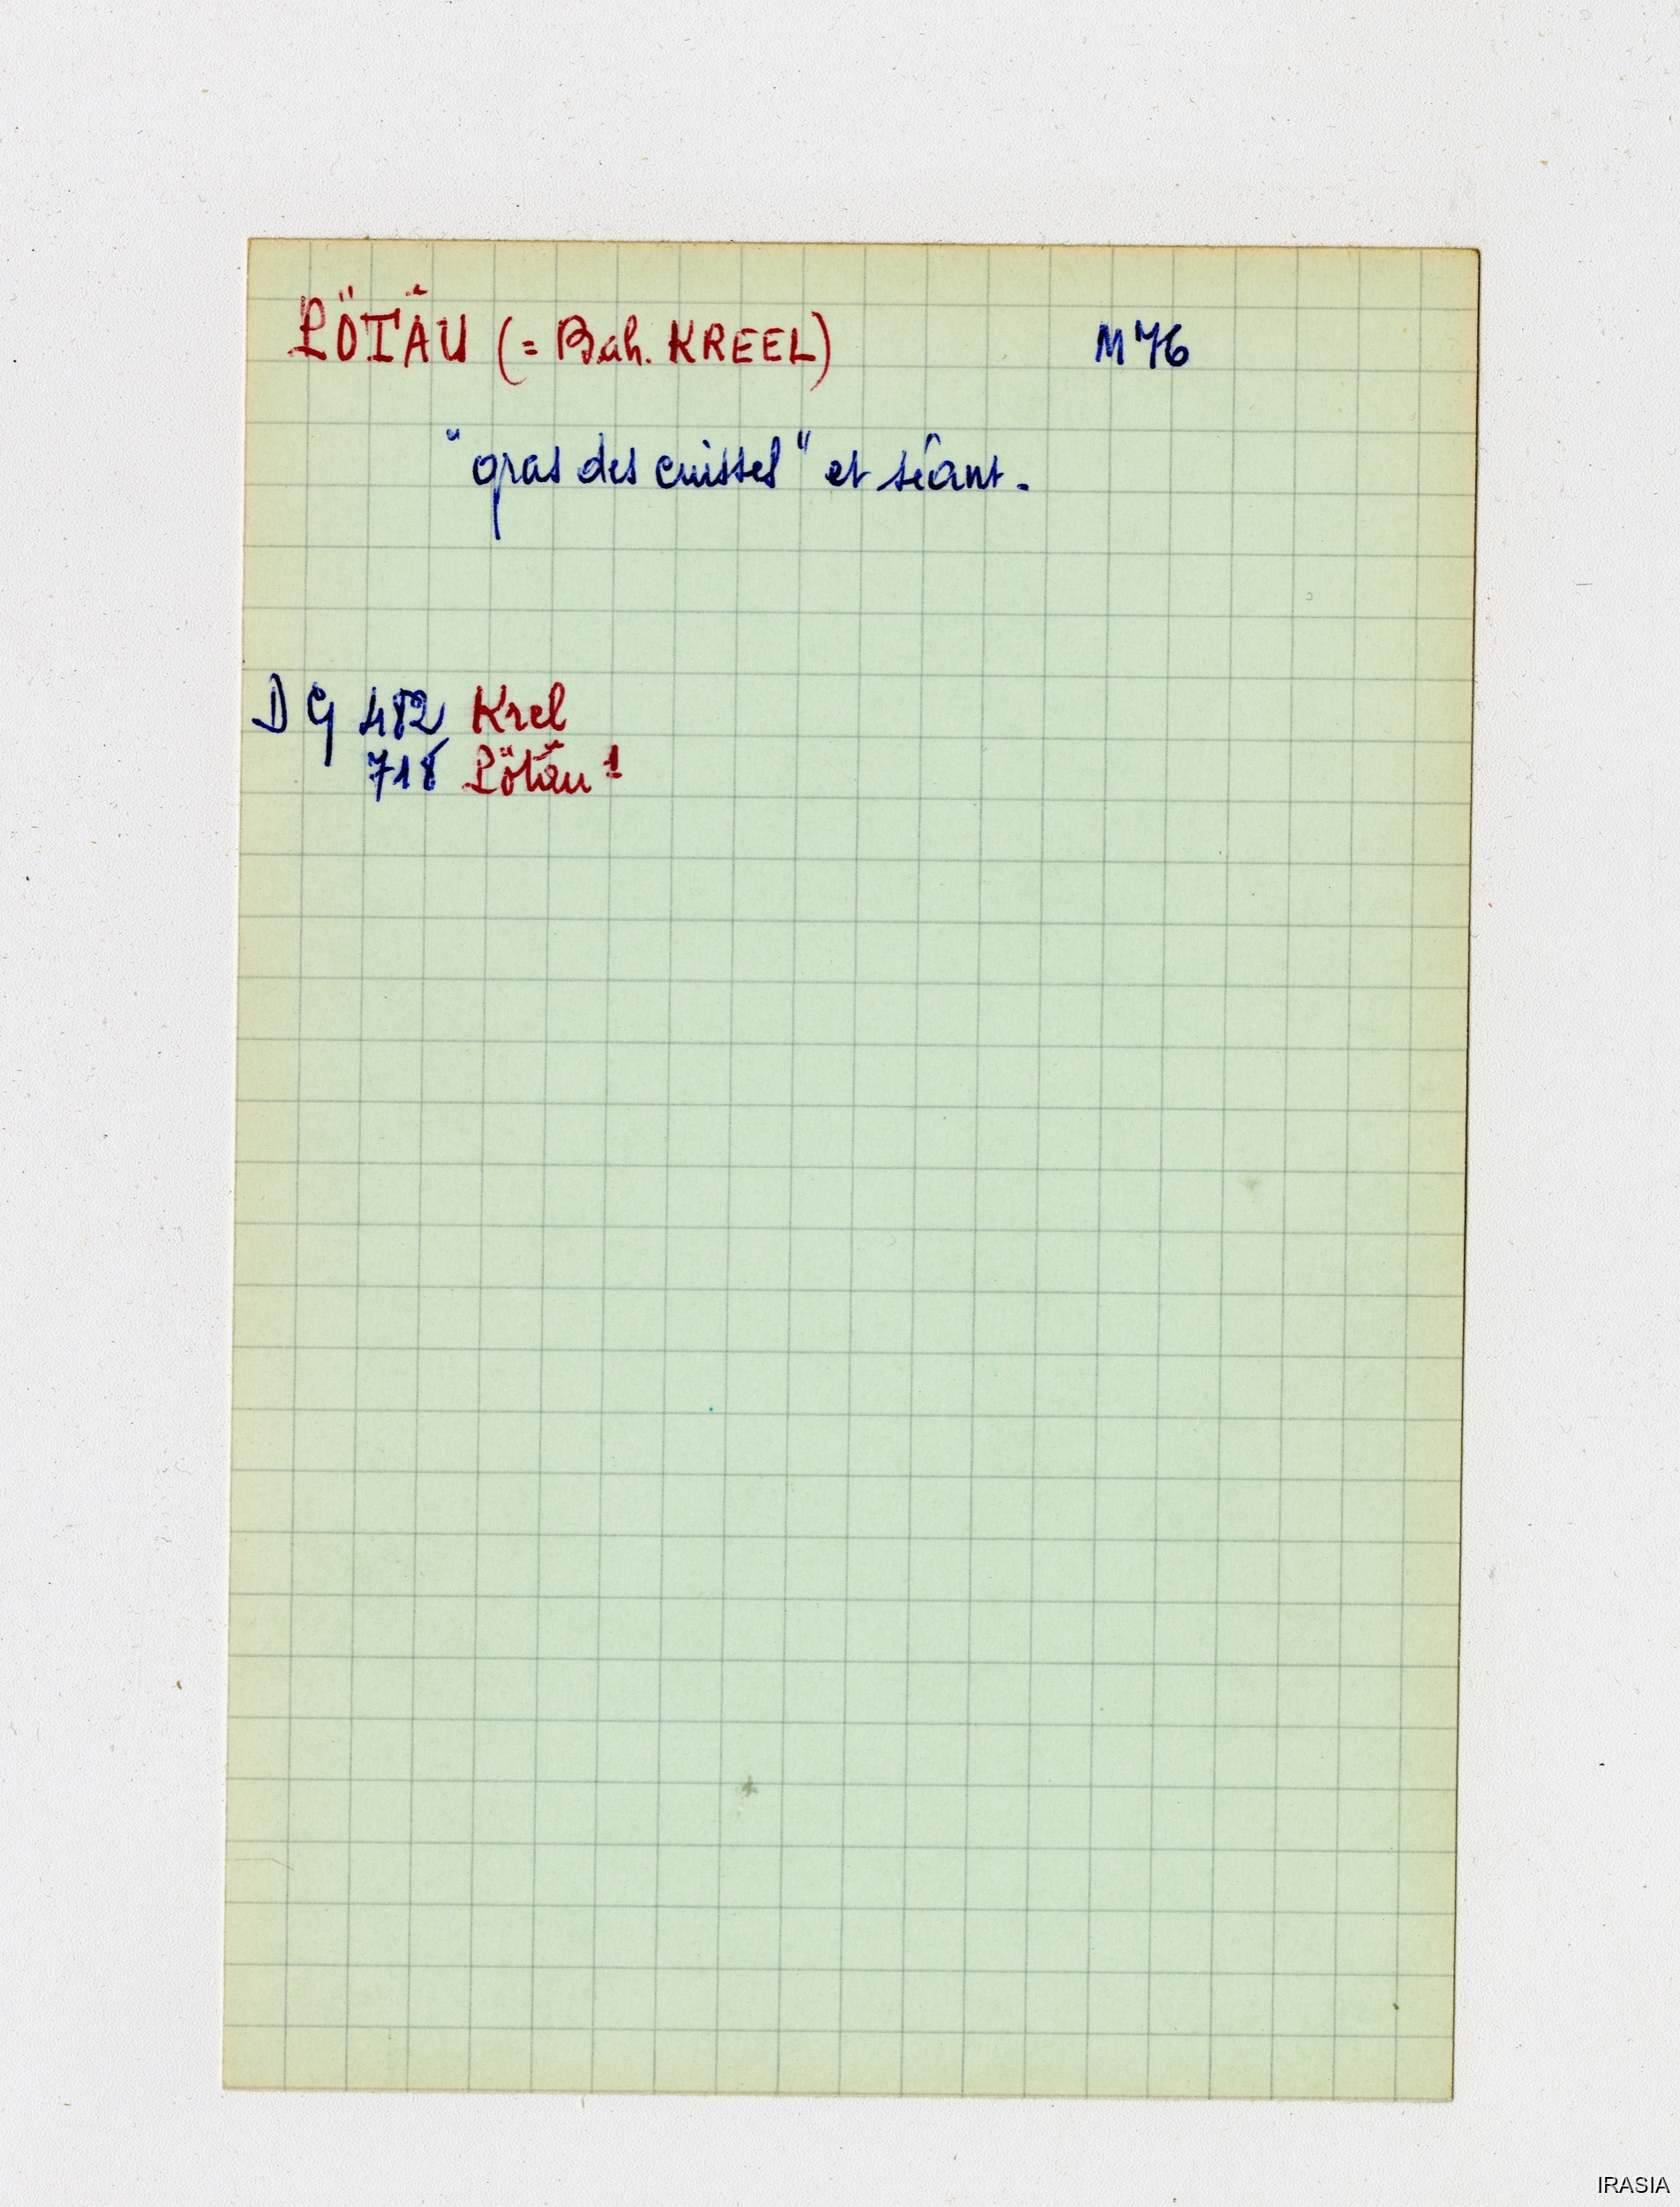 PÖTÂU (= Bah. KREEL) M 76
"gras des cuisses" et séant.
DG 482 Krel
718 Pötâu 1
IRASIA